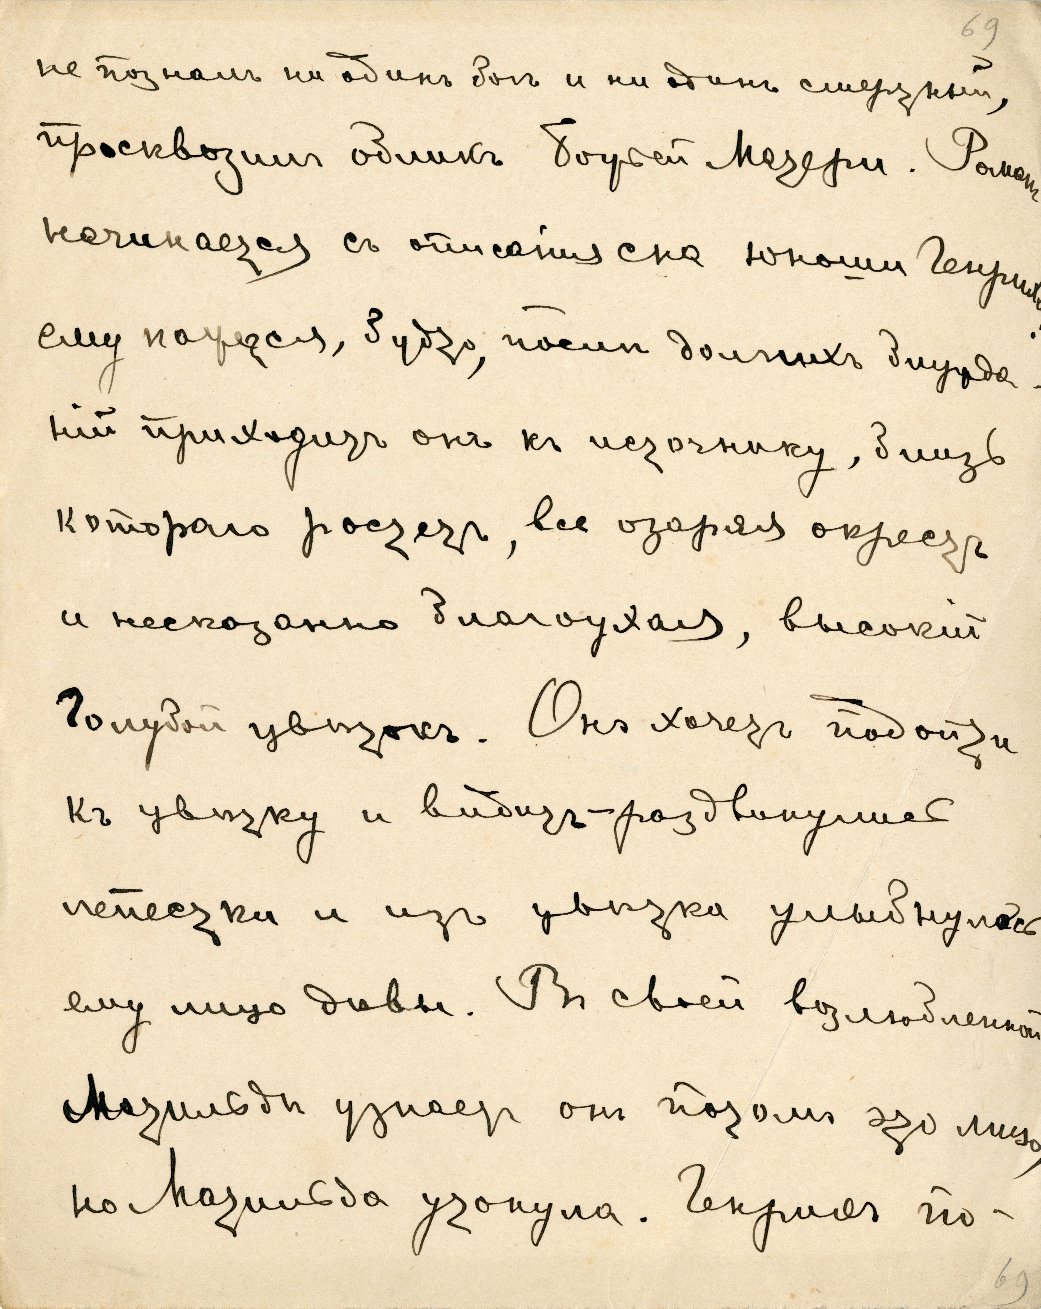 69
не позналъ ни одинъ богъ и ни одинъ смертный,
просквозилъ обликъ Божьей Матери. Романъ
начинается съ описанія сна юноши Генриха:
ему кажется, будто, послѣ долгихъ блужда-
ній приходитъ онъ къ источнику, близь
котораго растетъ, все озаряя окрестъ
и несказанно благоухая, высокій
голубой цвѣтокъ. Онъ хочетъ подойти
къ цвѣтку и видитъ–раздвинулись
лепестки и изъ цвѣтка улыбнулось
ему лицо дѣвы. Въ своей возлюбленной
Матильдѣ узнаетъ онъ потомъ это лицо,
но Матильда утонула. Генрихъ по-
69